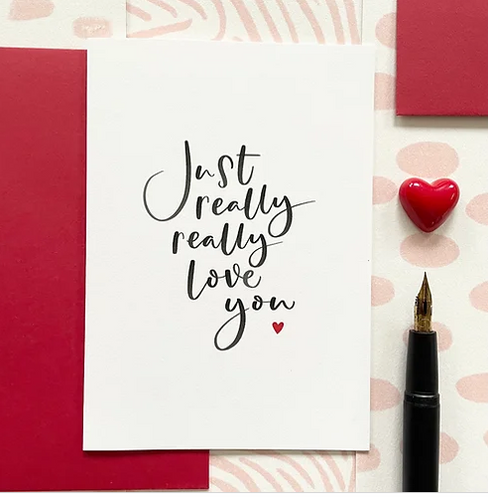 Just
really
really
love
you